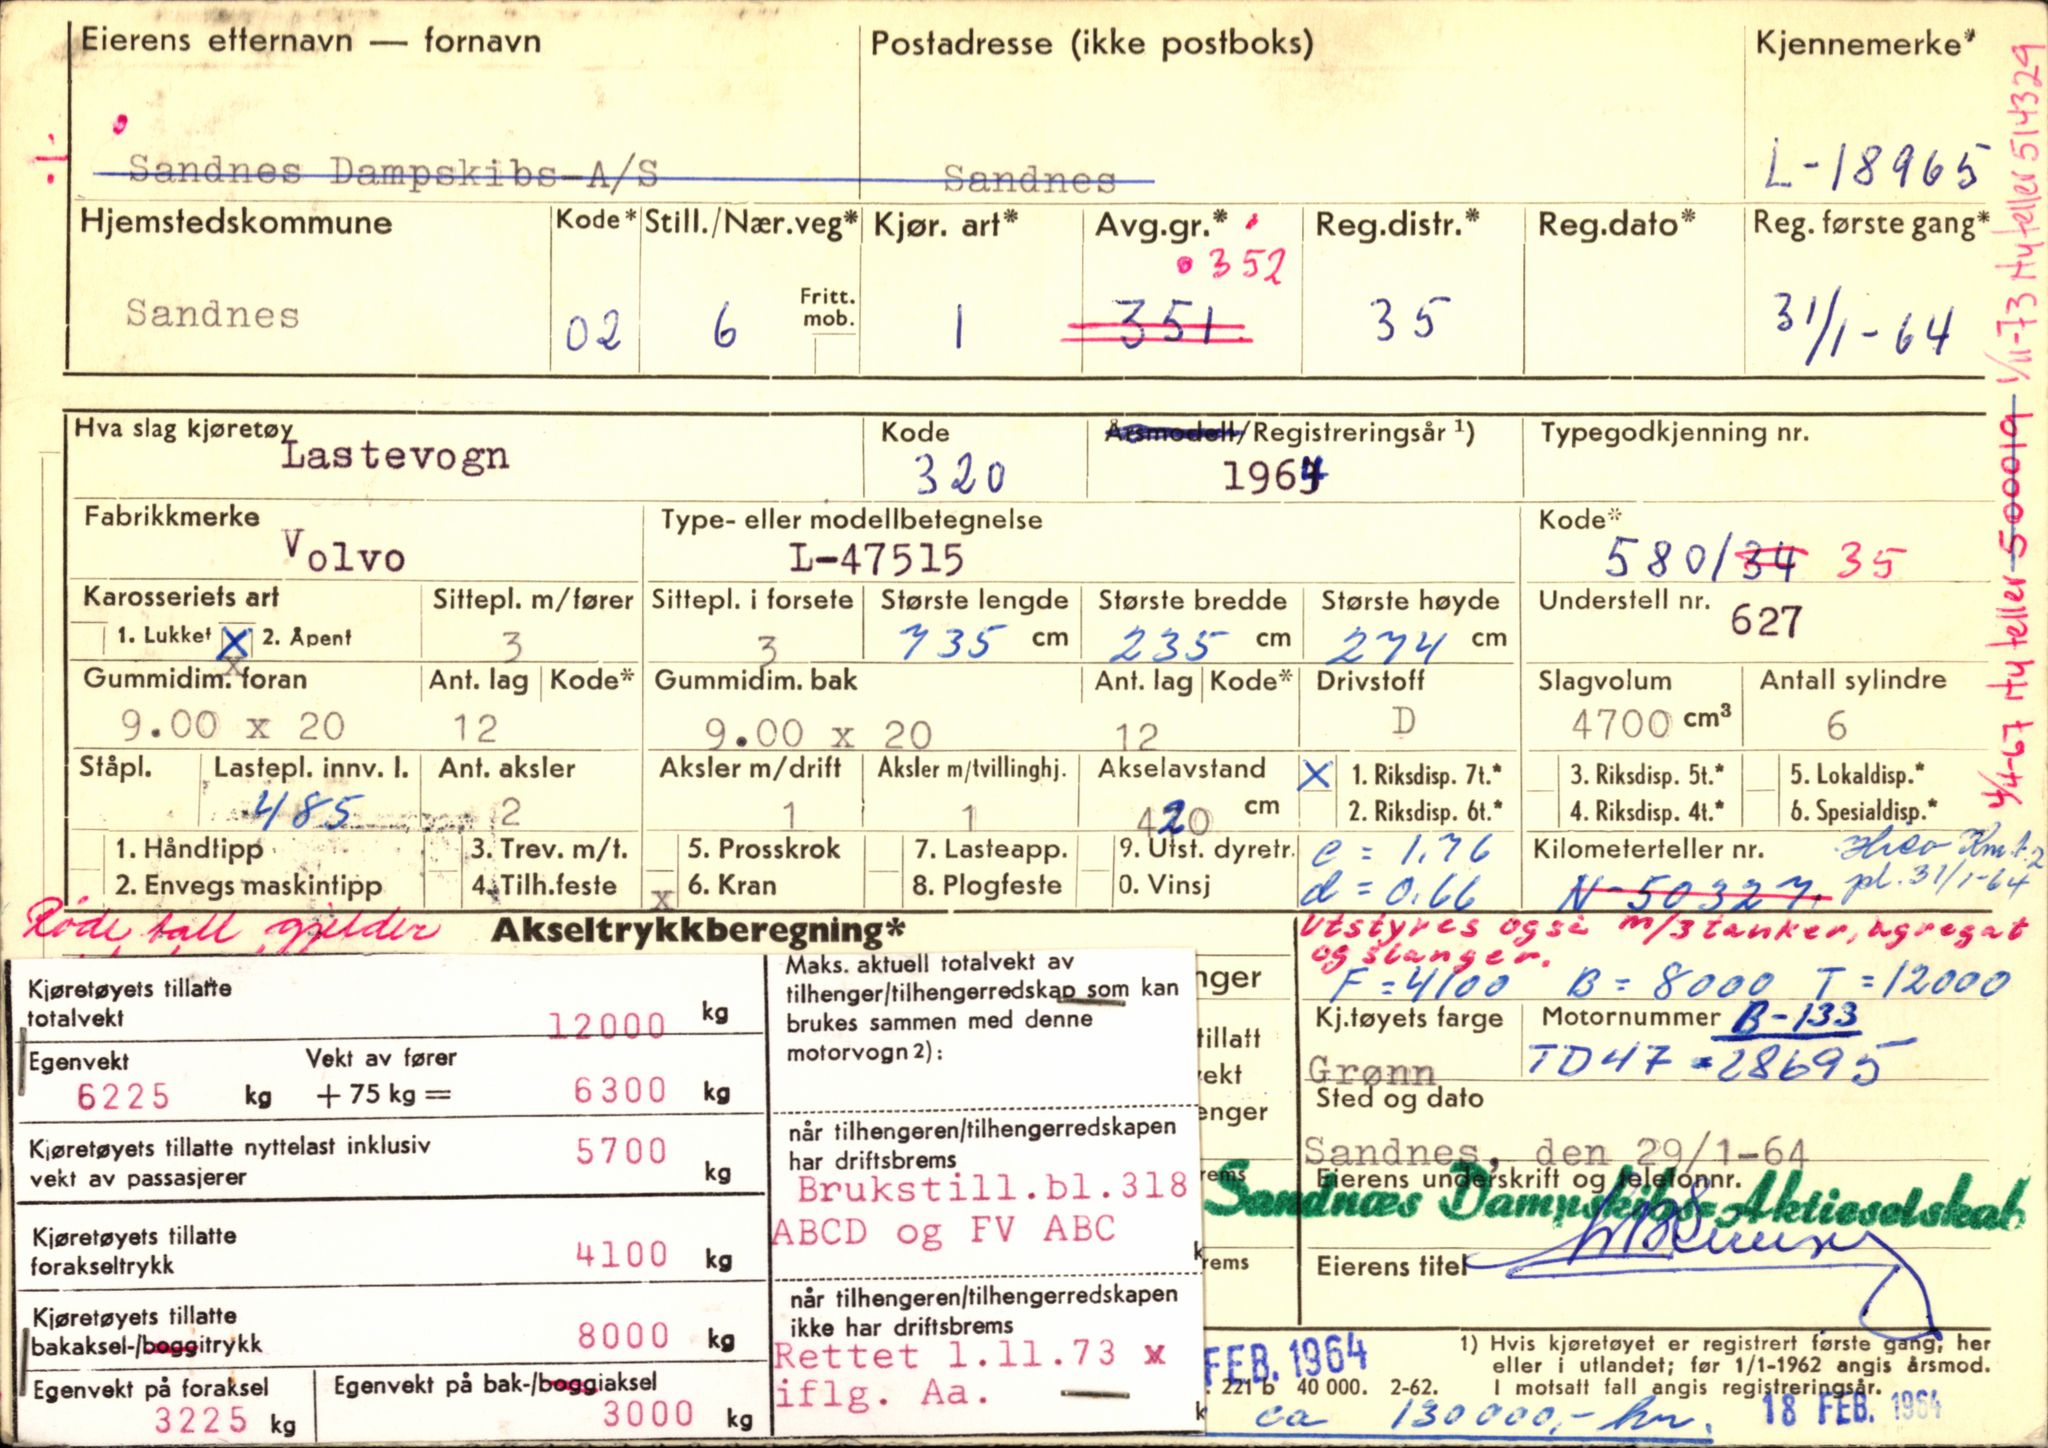 Eierens etternavn — fornavn
Postadresse (ikke postboks)
Kjennemerke*
Sandnes Dampskibs-A/S
Sandnes
L-18965
Hjemstedskommune
Kode*
Still./Nær.veg*
Kjør. art*
Avg.gr.*
Reg.distr.*
Reg.dato*
Reg. første gang*
352
Sandnes
02
6
Fritt.
mob.
1
351
35
31/1-64
4/4-67 Hy teller 50019 1/11-73 Hy teller 514329
Hva slag kjøretøy
Lastevogn
Kode
320
Årsmodell/Registreringsår ¹)
1964
Typegodkjenning nr.
Fabrikkmerke
Volvo
Type- eller modellbetegnelse
L-47515
Kode*
580/34 35
Karosseriets art
1. Lukket X 2. Åpent
x
Sittepl. m/fører
3
Sittepl. i forsete
3
Største lengde
735 cm
Største bredde
235 cm
Største høyde
274 cm
Understell nr.
627
Gummidim. foran
9.00 x 20
Ant. lag
12
Kode*
Gummidim. bak
9.00 x 20
Ant. lag
12
Kode*
Drivstoff
D
Slagvolum
4700 cm³
Antall sylindre
6
Ståpl.
Lastepl. innv. l.
485
Ant. aksler
2
Aksler m/drift
1
Aksler m/tvillinghj.
1
Akselavstand
420 cm
X 1. Riksdisp. 7t.*
2. Riksdisp. 6t.*
3. Riksdisp. 5t.*
4. Riksdisp. 4t.*
5. Lokaldisp.*
6. Spesialdisp.*
1. Håndtipp
2. Envegs maskintipp
3. Trev. m/t.
4. Tilh.feste
5. Prosskrok
x 6. Kran
7. Lasteapp.
8. Plogfeste
9. Utst. dyretr.
0. Vinsj
c = 1.76
d = 0.66
Kilometerteller nr.
N-50327.
pl. 31/1-64
Røde tall gjelder
Akseltrykkberegning*
Utstyres også m/3 tanker, agregat
og slanger.
F = 4100 B = 8000 T = 12000
Kjøretøyets tillatte
totalvekt
12000 kg
Egenvekt
6225 kg
Vekt av fører
+ 75 kg =
6300 kg
Kjøretøyets tillatte nyttelast inklusiv
vekt av passasjerer
5700 kg
Kjøretøyets tillatte
forakseltrykk
4100 kg
Kjøretøyets tillatte
bakaksel-/boggitrykk
8000 kg
Egenvekt på foraksel
3225 kg
Egenvekt på bak-/boggiaksel
3000 kg
Maks. aktuell totalvekt av
tilhenger/tilhengerredskap som kan
brukes sammen med denne
motorvogn 2):
når tilhengeren/tilhengerredskapen
har driftsbrems
Brukstill.bl.318
ABCD og FV ABC
når tilhengeren/tilhengerredskapen
ikke har driftsbrems
Rettet 1.11.73 x
iflg. Aa.
nger
tillatt
ekt
enger
rems
k
rems
k
Kj.tøyets farge
Grønn
Motornummer B-133
TD47 = 28695
Sted og dato
Sandnes, den 29/1-64
Eierens underskrift og telefonnr.
Sandnæs Dampskibs-Aktieselskab
Eierens titel
FEB. 1964
221 b 40 000. 2-62.
1) Hvis kjøretøyet er registrert første gang, her
eller i utlandet; før 1/1-1962 angis årsmod.
I motsatt fall angis registreringsår.
ca 130000,- kr.
18 FEB. 1964